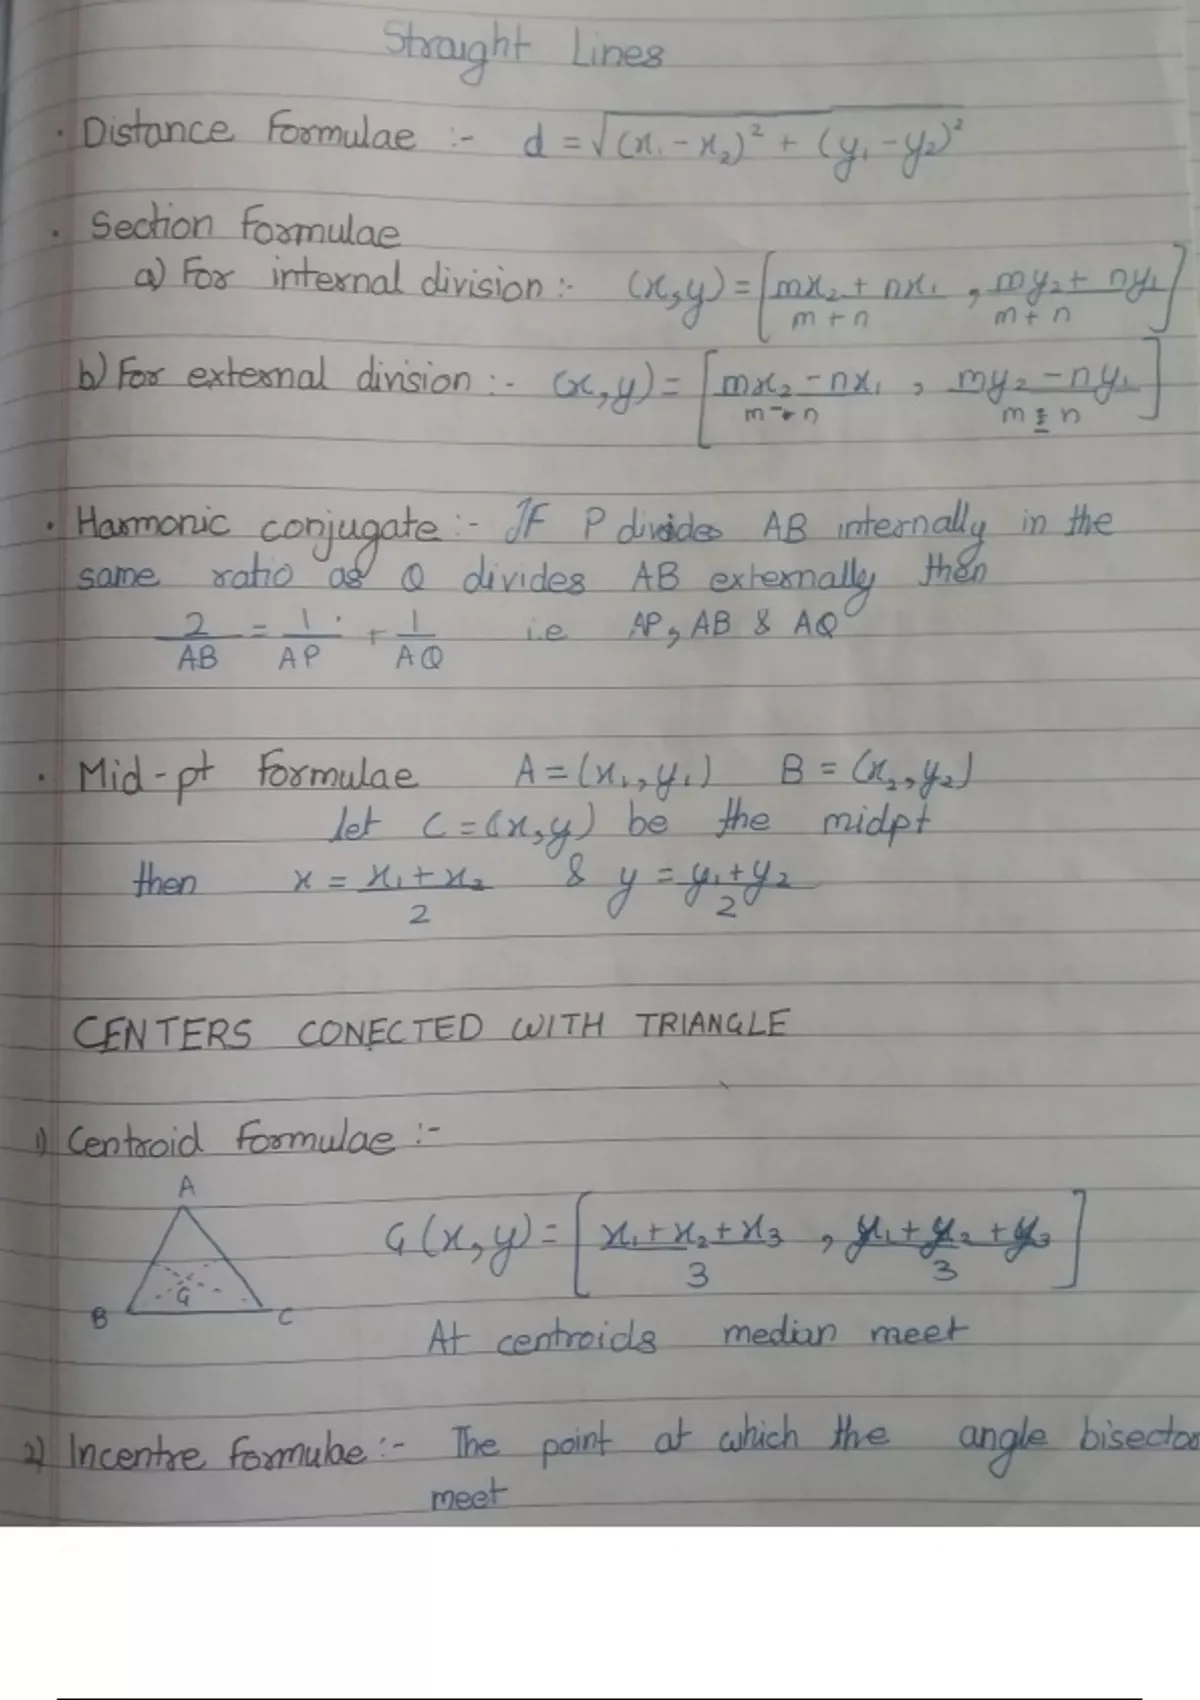 Straight Lines
· Distance Formulae :- d = √(x₁ - x₂)² + (y₁ - y₂)²
· Section Formulae
a) For internal division :- (x,y) = [mx₂ + nx₁ / m + n , my₂ + ny₁ / m + n]
b) For external division :- (x,y) = [mx₂ - nx₁ / m - n , my₂ - ny₁ / m - n]
· Harmonic conjugate :- If P divides AB internally in the
same ratio as Q divides AB externally then
2/AB = 1/AP + 1/AQ i.e AP, AB & AQ
· Mid-pt Formulae A = (x₁, y₁) B = (x₂, y₂)
let C = (x,y) be the midpt
then x = x₁ + x₂ / 2 & y = y₁ + y₂ / 2
CENTERS CONECTED WITH TRIANGLE
1) Centroid Formulae :-
A
G(x,y) = [x₁ + x₂ + x₃ / 3 , y₁ + y₂ + y₃ / 3]
B G C
At centroids median meet
2) Incentre Formulae :- The point at which the angle bisector
meet